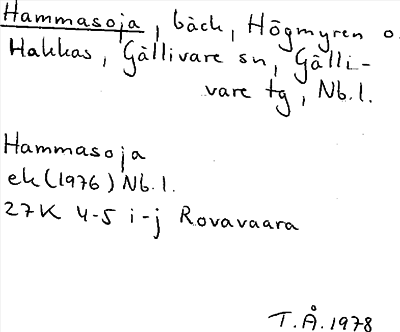 Hammasoja, bäck, Högmyren o.
Hakkas, Gällivare sn, Gälli-
vare tg, Nb.l.
Hammasoja
ek (1976) Nb.l.
27K 4-5 i-j Rovavaara
T.Å. 1978